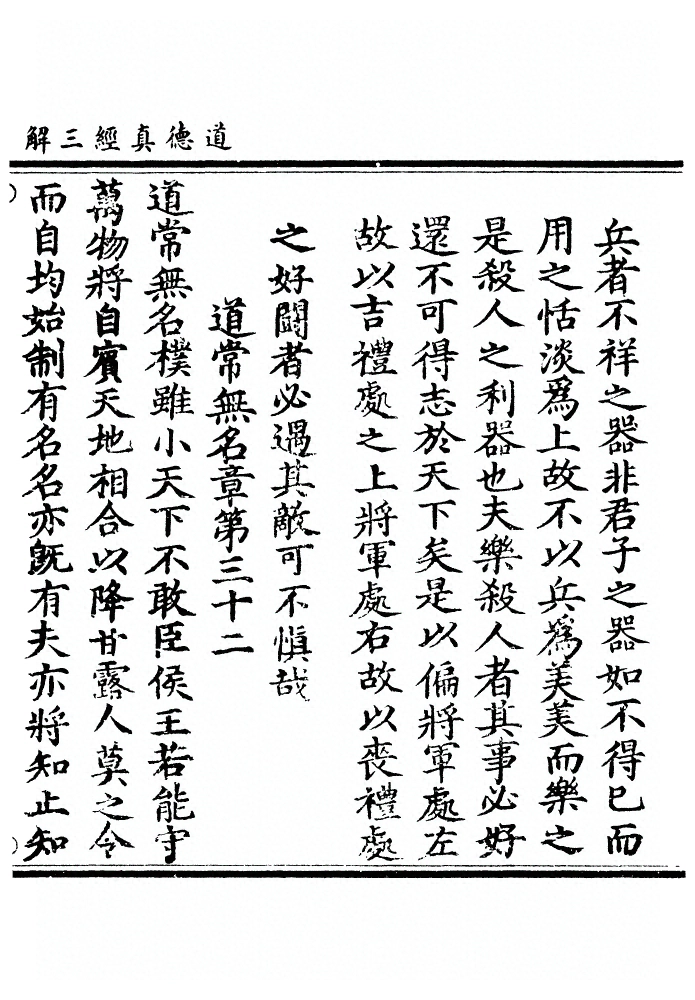 道德真經三解
兵者不祥之器非君子之器如不得已而
用之恬淡爲上故不以兵爲美美而樂之
是殺人之利器也夫樂殺人者其事必好
還不可得志於天下矣是以偏將軍處左
故以吉禮處之上將軍處右故以丧禮處
之好鬪者必遇其敵可不慎哉
道常無名章第三十二
道常無名樸雖小天下不敢臣侯王若能守
萬物將自賓天地相合以降甘露人莫之令
而自均始制有名名亦旣有夫亦將知止知